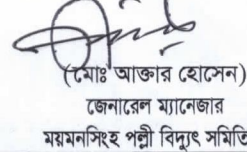 (মোঃ আক্তার হোসেন)
জেনারেল ম্যানেজার
ময়মনসিংহ পল্লী বিদ্যুৎ সমিতি